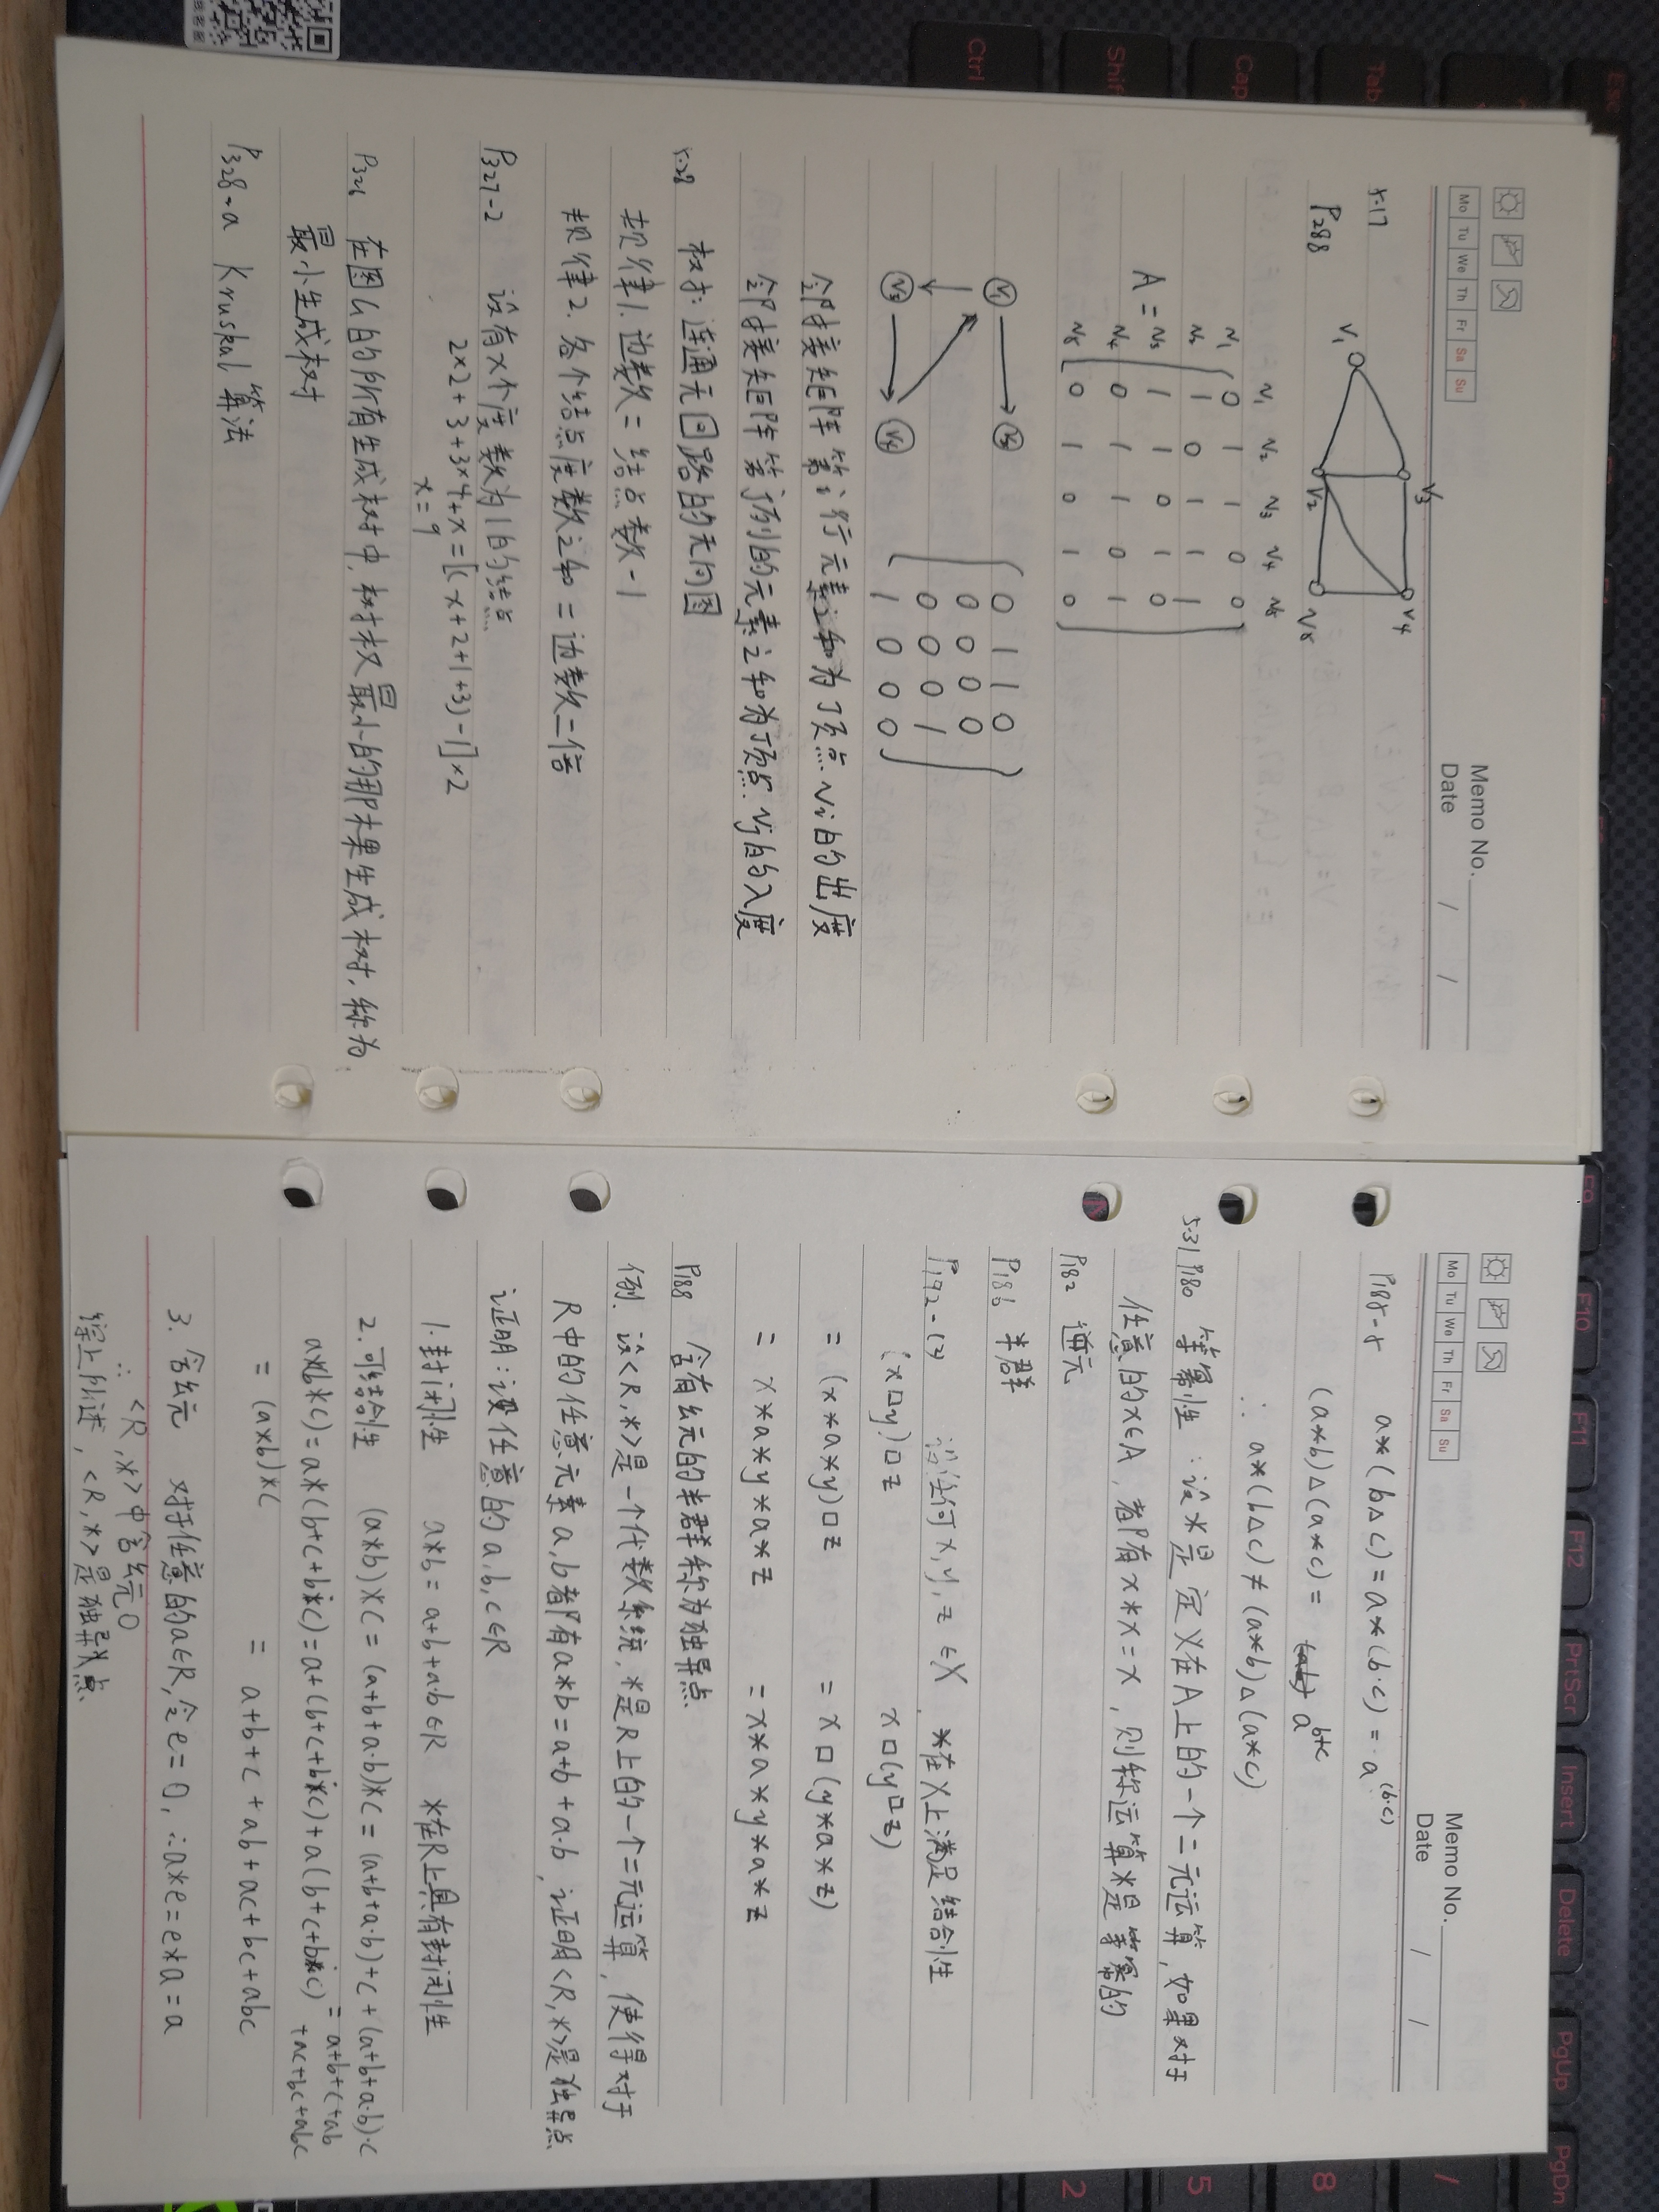 Mo Tu We Th Fr Sa Su
Memo No.
Date / /
V3 V4
5.17
V1
P288 V2 V5
V1 V2 V3 V4 V5
V1 0 1 1 0 0
V2 1 0 1 1 1
A = V3 1 1 0 1 0
V4 0 1 1 0 1
V5 0 1 0 1 0
V1 V2 0 1 1 0
0 0 0 0
0 0 0 1
V3 V4 1 0 0 0
邻接矩阵第i行元素之和为顶点Vi的出度
邻接矩阵第j列的元素之和为顶点Vj的入度
5.28 树: 连通无回路的无向图
规律1. 边数 = 结点数-1
规律2. 各个结点度数之和 = 边数二倍
P327-2 设有x个度数为1的结点
2×2+3+3×4+x=[(x+2+1+3)-1]×2
x=9
P326 在图G的所有生成树中,树权最小的那棵生成树,称为
最小生成树
P328-a Kruskal 算法
Mo Tu We Th Fr Sa Su
Memo No.
Date / /
P185-5 a*(b△c)=a*(b·c)=a^(b·c)
(a*b)△(a*c)= a^b+c
∴ a*(b△c)≠(a*b)△(a*c)
5.31 P180 等幂性:设*是定义在A上的一个二元运算,如果对于
任意的x∈A,都有x*x=x,则称运算*是等幂的
P182 逆元
P186 半群
P192-(3) 设任何x,y,z∈X *在X上满足结合性
(x□y)□z x□(y□z)
= (x*a*y)□z = x□(y*a*z)
= x*a*y*a*z = x*a*y*a*z
P188 含有幺元的半群称为独异点
例. 设<R,*>是一个代数系统,*是R上的一个二元运算,使得对于
R中的任意元素a,b都有a*b=a+b+a·b,证明<R,*>是独异点
证明:设任意的a,b,c∈R
1.封闭性 a*b=a+b+a·b∈R *在R上具有封闭性
2.可结合性 (a*b)*c=(a+b+a·b)*c=(a+b+a·b)+c+(a+b+a·b)·c
= a+b+c+ab
+ac+bc+abc
a*(b*c)=a*(b+c+b·c)=a+(b+c+b·c)+a(b+c+b·c)
= (a*b)*c = a+b+c+ab+ac+bc+abc
3. 含幺元 对于任意的a∈R,令e=0,∴a*e=e*a=a
∴ <R,*>中含幺元0
综上所述,<R,*>是独异点
Esc
Tab
Cap
Shif
Ctrl
F9 F10 F11 F12 PrtScr Insert Delete PgUp PgDn
/
8
5
2